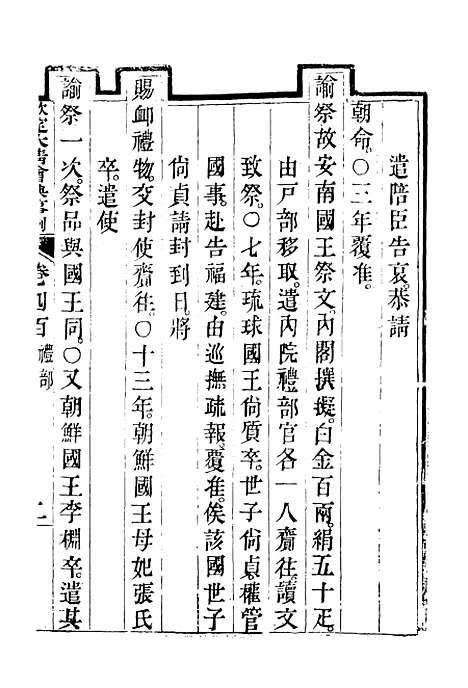 遣陪臣告哀。恭請
朝命。○三年覆准。
諭祭故安南國王祭文。內閣撰擬。白金百兩。絹五十疋。
由戶部移取。遣內院禮部官各一人齎往。讀文
致祭。○七年。琉球國王尙質卒。世子尙貞。權管
國事。赴告福建。由巡撫疏報。覆准。俟該國世子
尙貞請封到日。將
賜卹禮物。交封使齎往。○十三年。朝鮮國王母妃張氏
卒。遣使
諭祭一次。祭品與國王同。○又朝鮮國王李棩卒。遣其
欽定大淸會典事例 卷四百 禮部 二